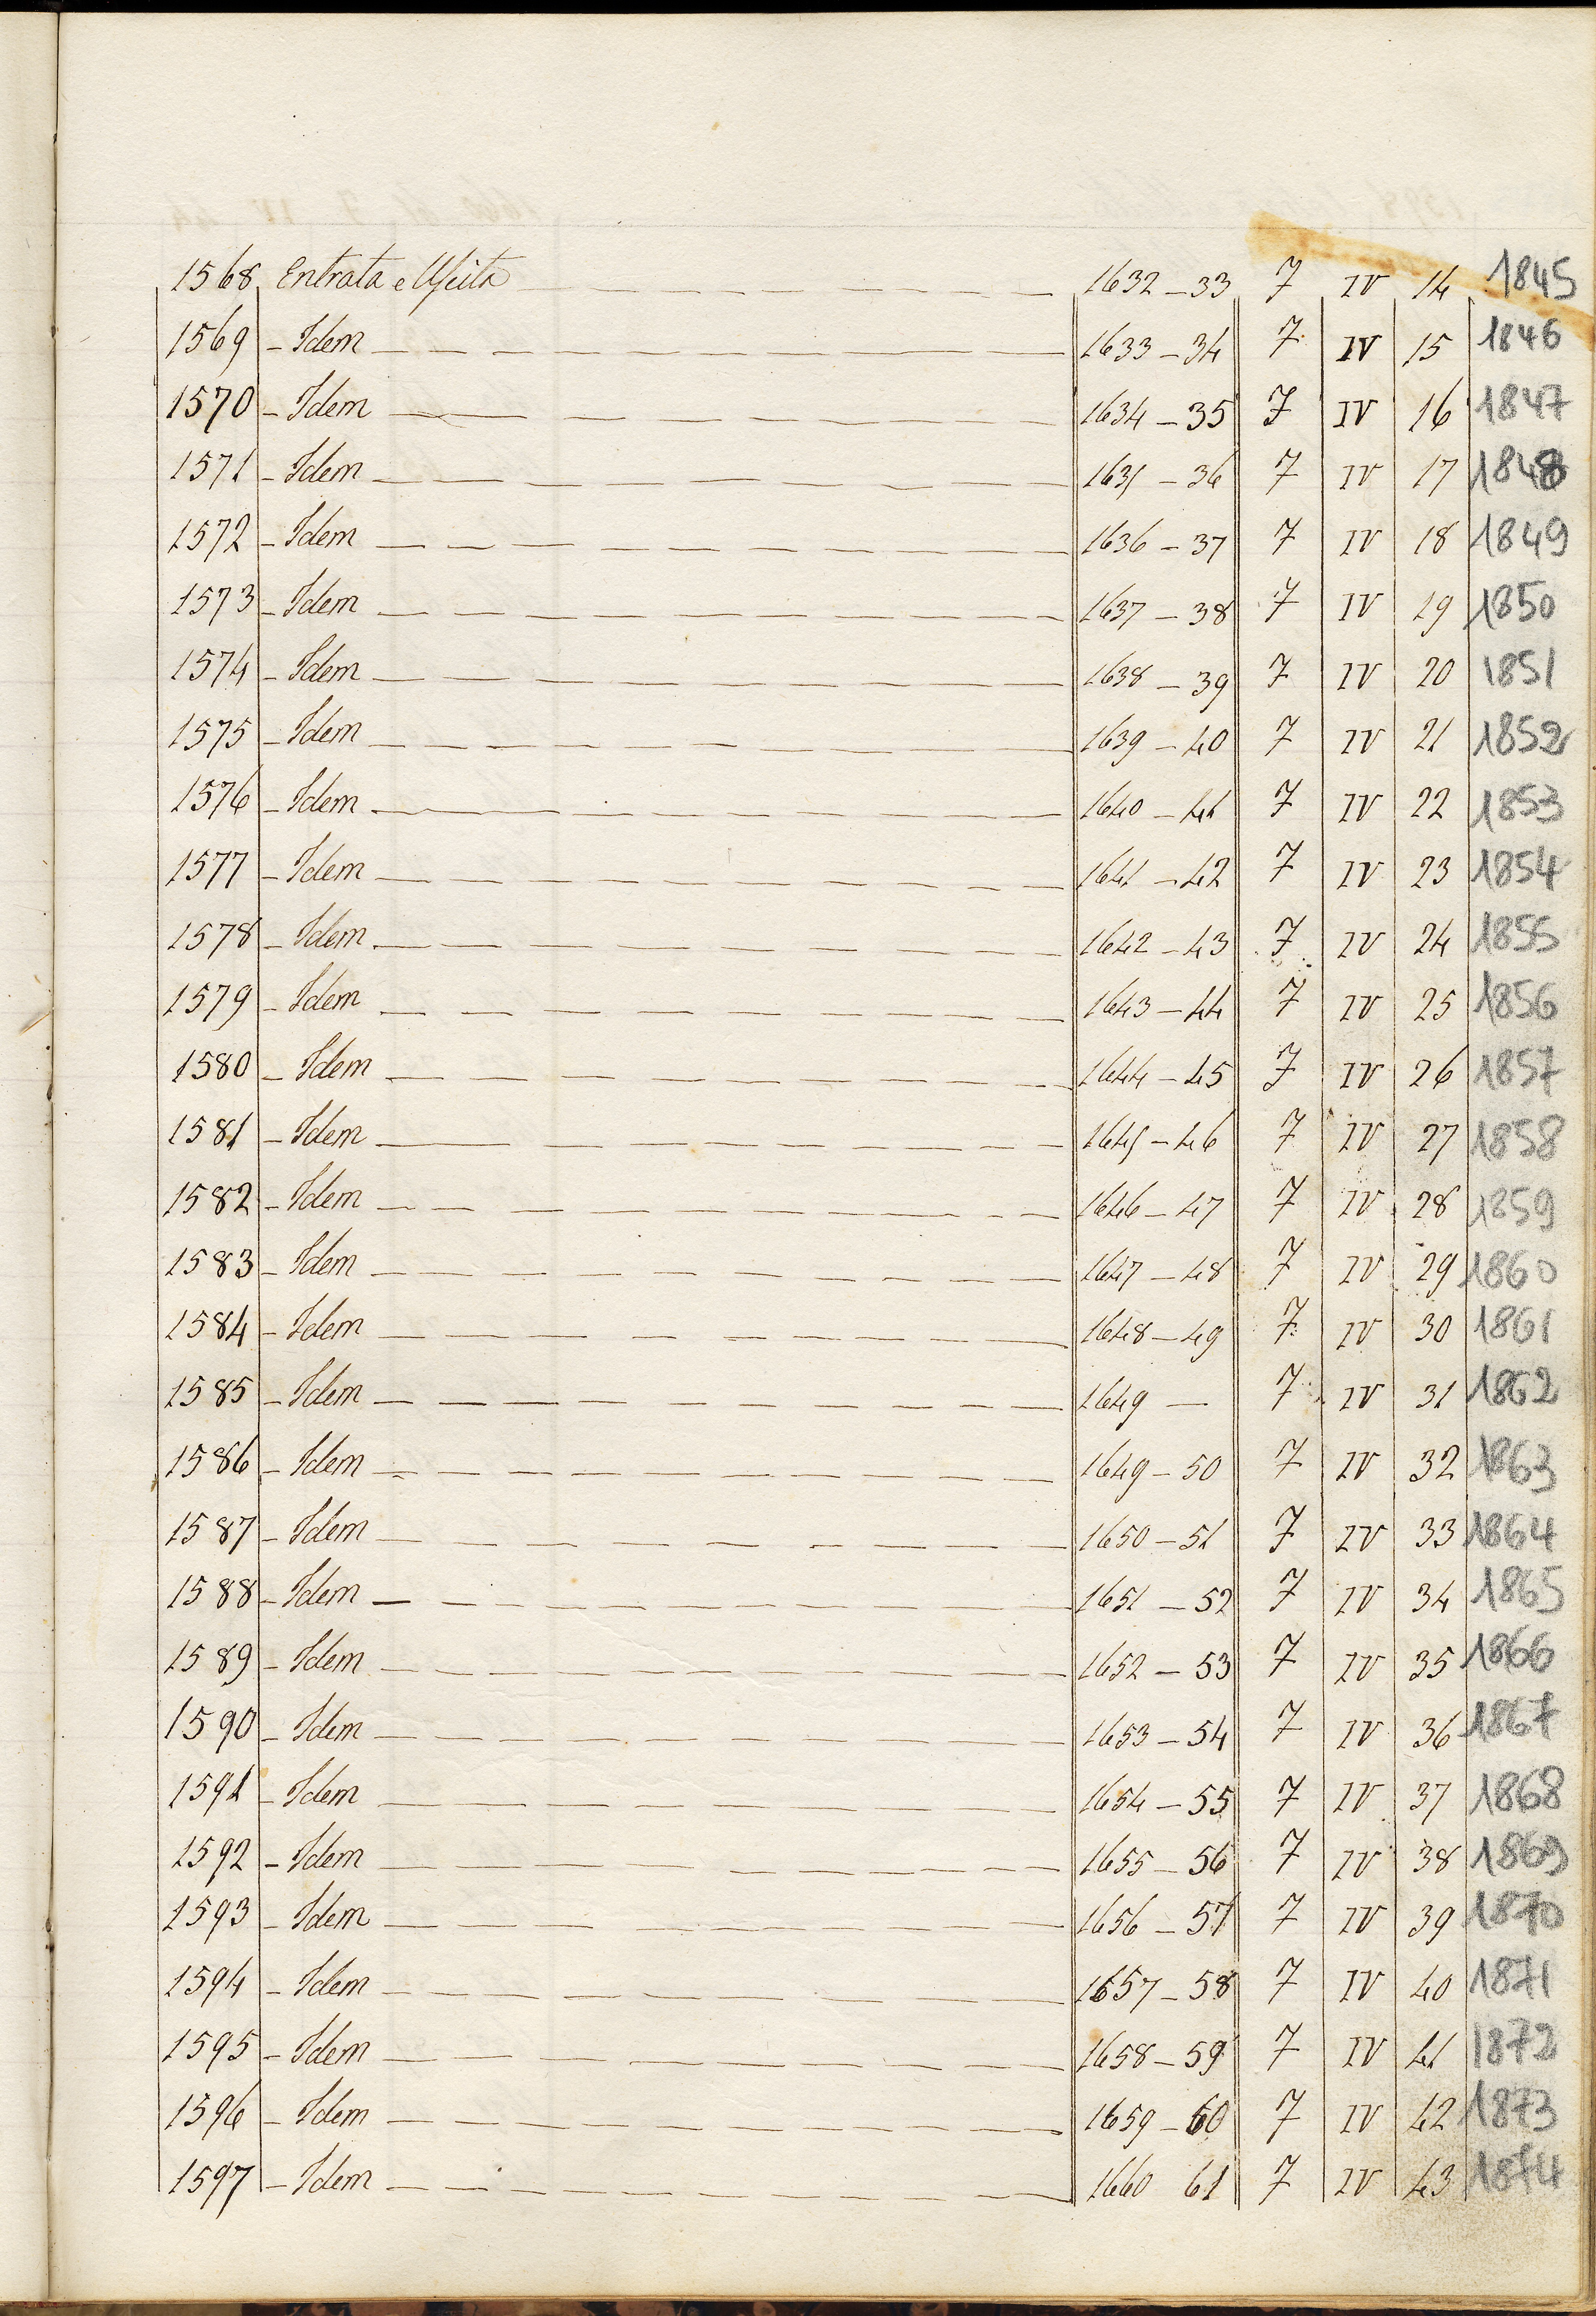 1568 Entrata e Uscita 1632 - 33 7 IV 14 1845
1569 - Idem 1633 - 34 7 IV 15 1846
1570 - Idem 1634 - 35 7 IV 16 1847
1571 - Idem 1635 - 36 7 IV 17 1848
1572 - Idem 1636 - 37 7 IV 18 1849
1573 - Idem 1637 - 38 7 IV 19 1850
1574 - Idem 1638 - 39 7 IV 20 1851
1575 - Idem 1639 - 40 7 IV 21 1852
1576 - Idem 1640 - 41 7 IV 22 1853
1577 - Idem 1641 - 42 7 IV 23 1854
1578 - Idem 1642 - 43 7 IV 24 1855
1579 - Idem 1643 - 44 7 IV 25 1856
1580 - Idem 1644 - 45 7 IV 26 1857
1581 - Idem 1645 - 46 7 IV 27 1858
1582 - Idem 1646 - 47 7 IV 28 1859
1583 - Idem 1647 - 48 7 IV 29 1860
1584 - Idem 1648 - 49 7 IV 30 1861
1585 - Idem 1649 - 7 IV 31 1862
1586 - Idem 1649 - 50 7 IV 32 1863
1587 - Idem 1650 - 51 7 IV 33 1864
1588 - Idem 1651 - 52 7 IV 34 1865
1589 - Idem 1652 - 53 7 IV 35 1866
1590 - Idem 1653 - 54 7 IV 36 1867
1591 - Idem 1654 - 55 7 IV 37 1868
1592 - Idem 1655 - 56 7 IV 38 1869
1593 - Idem 1656 - 57 7 IV 39 1870
1594 - Idem 1657 - 58 7 IV 40 1871
1595 - Idem 1658 - 59 7 IV 41 1872
1596 - Idem 1659 - 60 7 IV 42 1873
1597 - Idem 1660 61 7 IV 43 1874